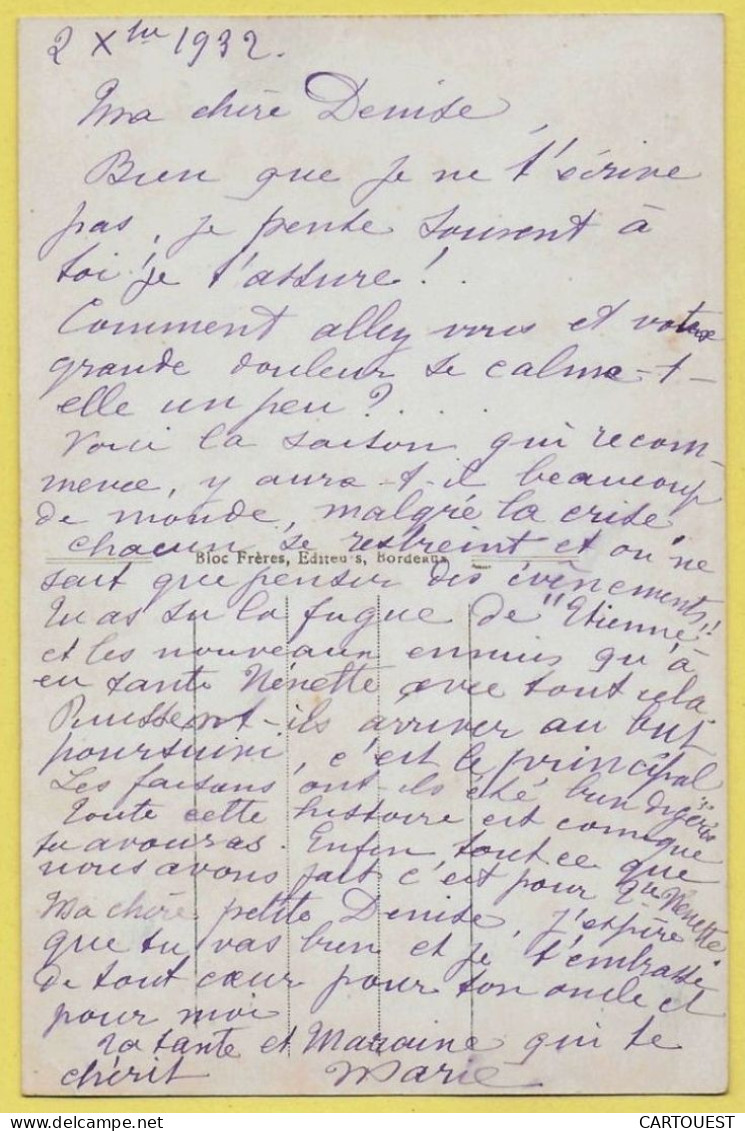 2 Xbre 1932.
Ma chère Denise,
Bien que je ne t'écrive
pas, je pense souvent à
toi je t'assure!..
Comment allez vous et votre
grande douleur se calme-t-
elle un peu?...
Voici la saison qui recom-
mence, y aura-t-il beaucoup
de monde, malgré la crise
chacun se restreint et on ne
Bloc Frères, Editeurs, Bordeaux
sait que penser des évènements!!
Tu as su la fugue de "Etienne"
et les nouveaux ennuis qu'a
eu tante Nénette avec tout cela.
Puissent-ils arriver au but
poursuivi, c'est le principal
Les faisans ont-ils été bien digérés
Toute cette histoire est comique
tu avoueras. Enfin, tout ce que
nous avons fait c'est pour Nénette.
Ma chère petite Denise, j'espère
que tu vas bien et je t'embrasse
de tout cœur pour ton oncle et
pour moi
Ta tante et Marraine qui te
chérit Marie
CARTOUEST